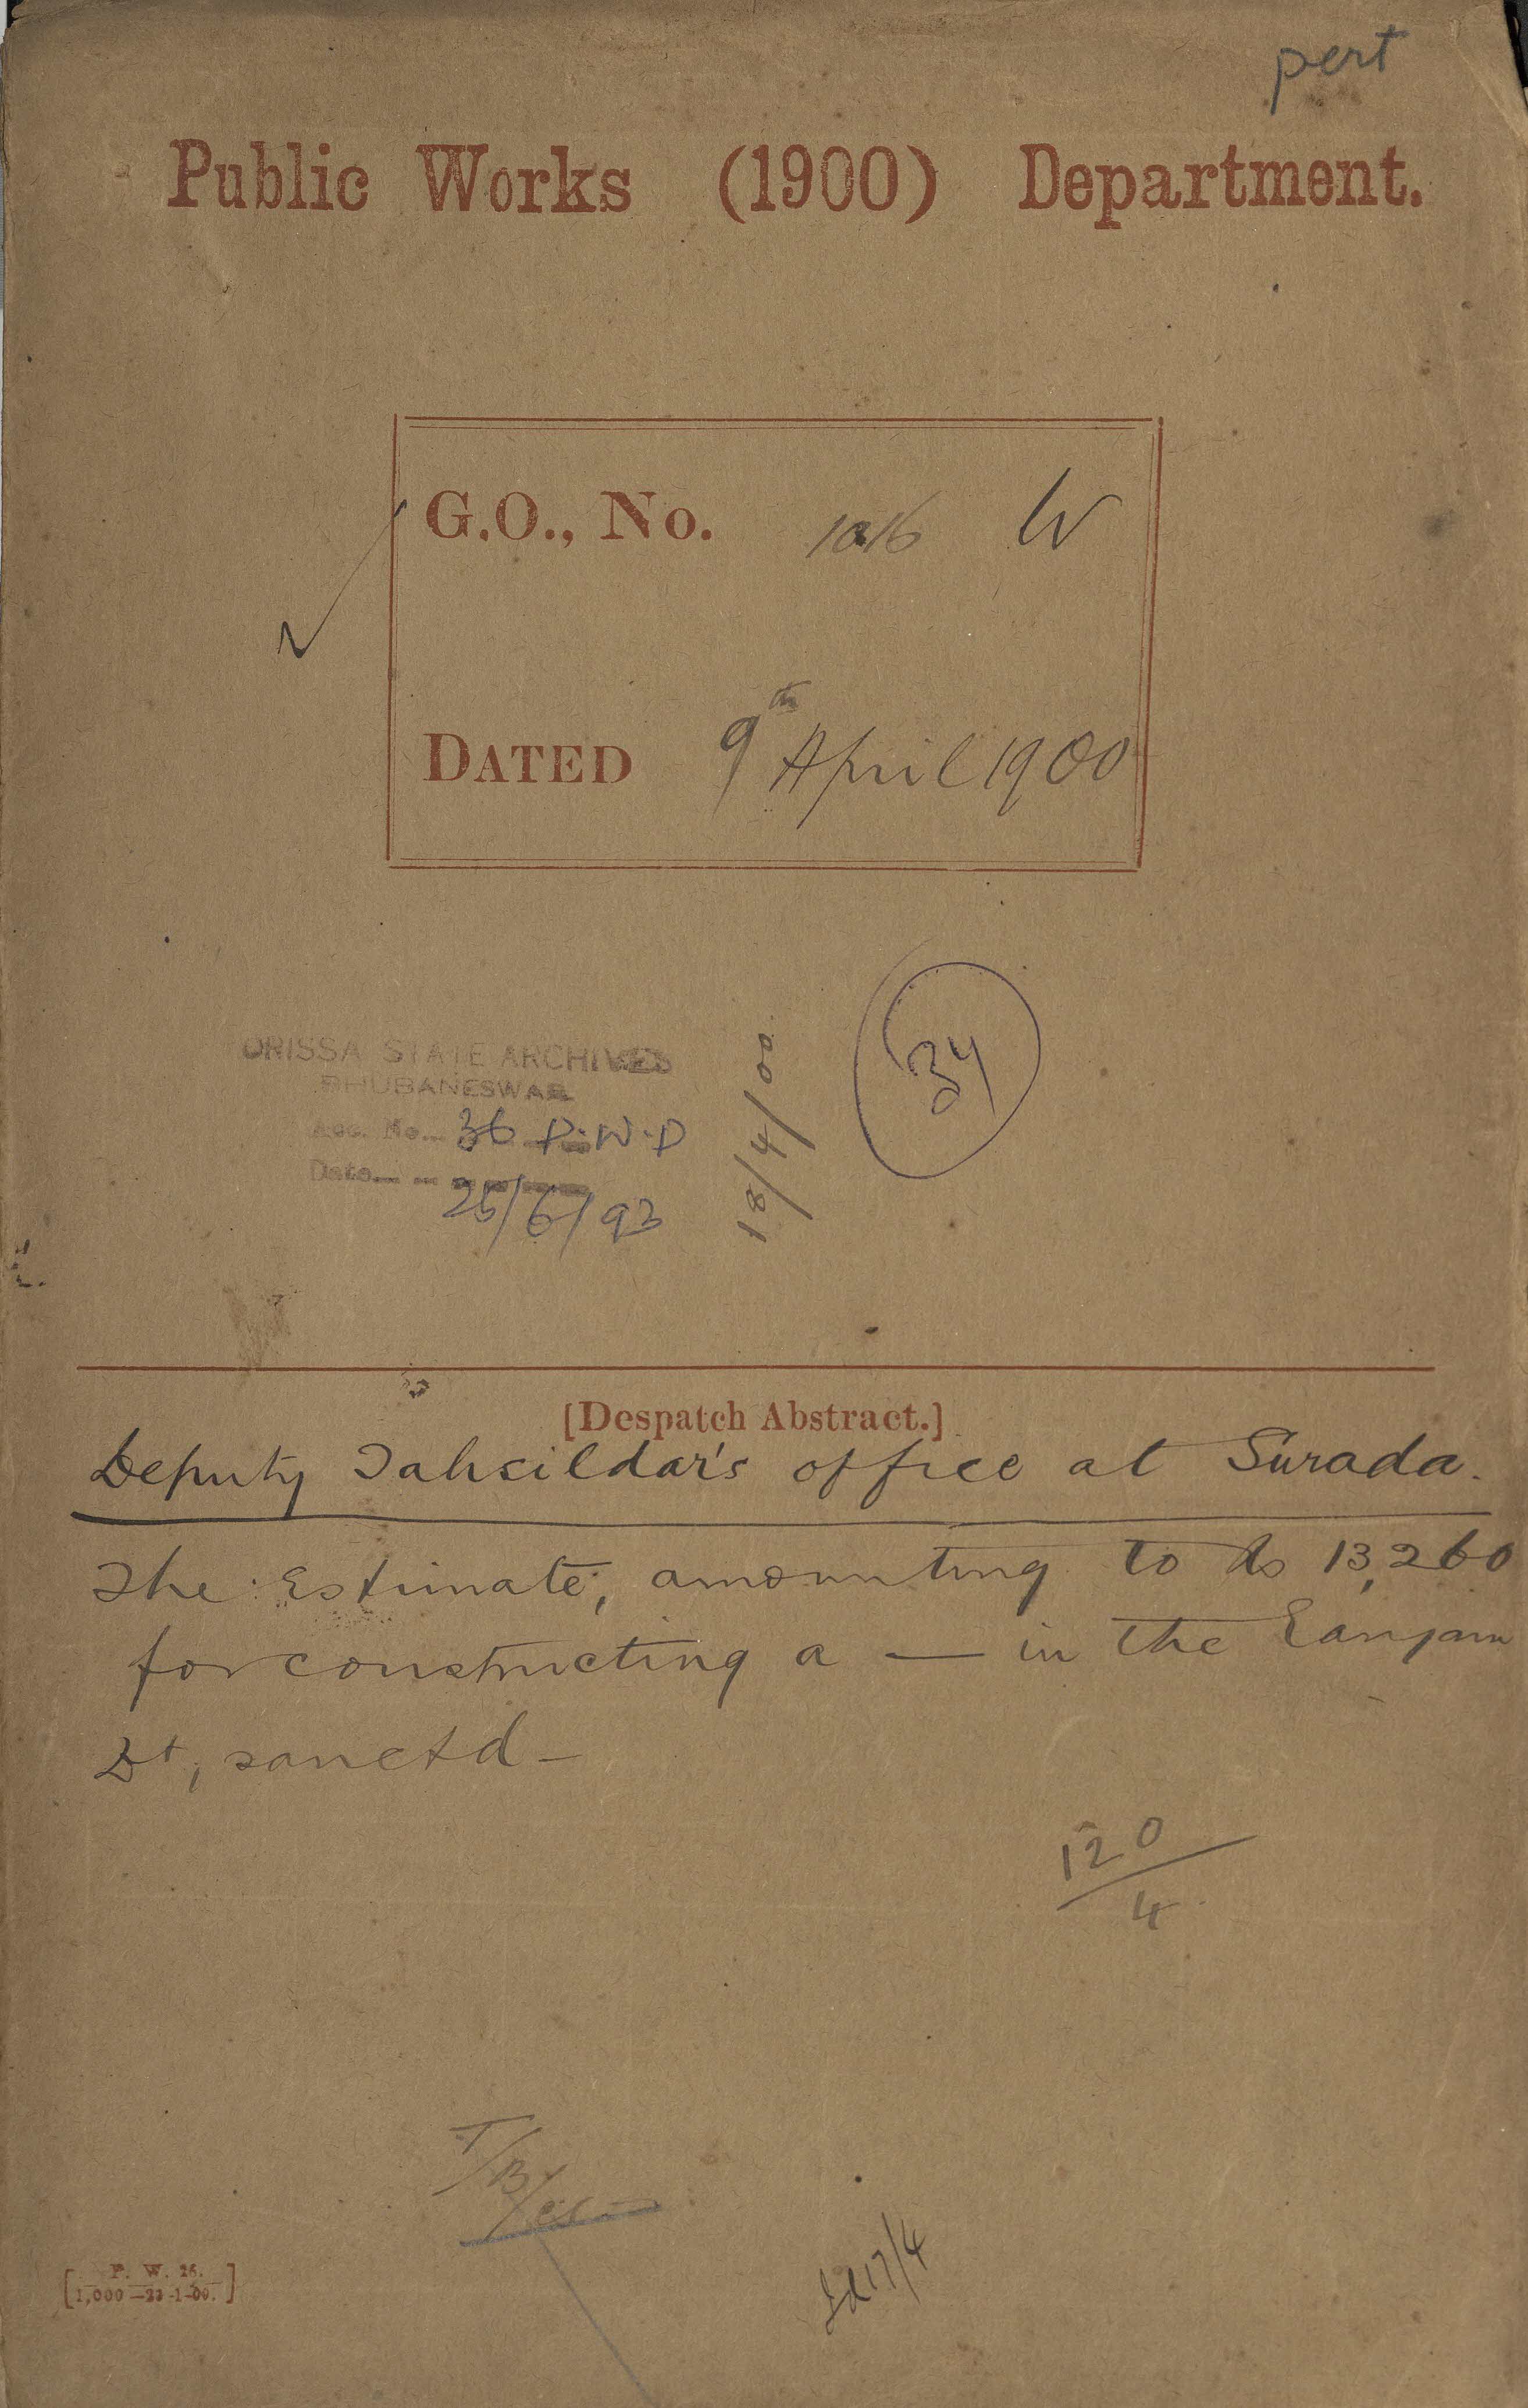 pert
Public Works (1900) Department.
G.O., No. 1016 W
DATED 9th April 1900
ORISSA STATE ARCHIVES
BHUBANESWAR
Acc. No. 36 P.W.D
Date 25/6/93
18/4/00
34
[Despatch Abstract.]
Deputy Tahsildar's office at Surada.
The Estimate, amounting to Rs 13,260
for constructing a — in the Ganjam
Dt, sanctd -
120
4
T/B/
17/4
[P. W. 26.
1,000—23-1-00.]